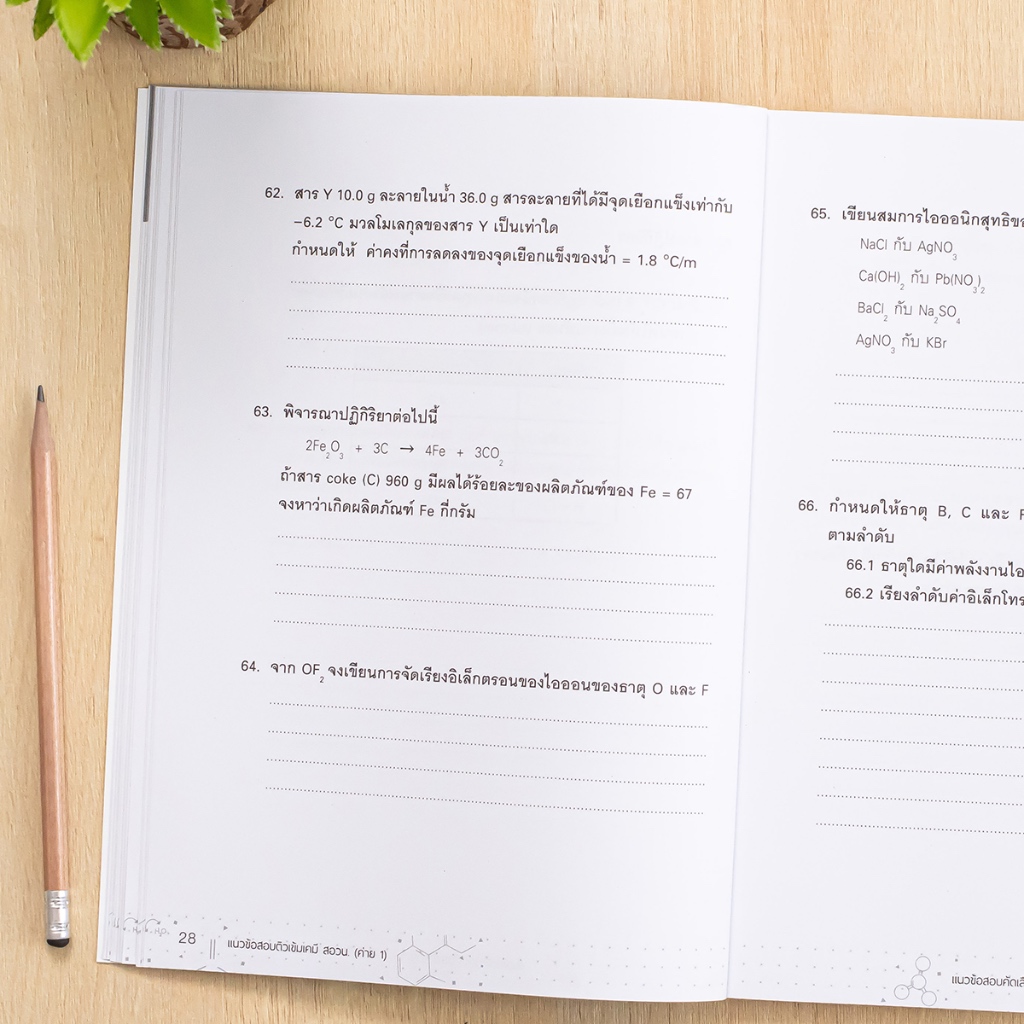 62. สาร Y 10.0 g ละลายในน้ำ 36.0 g สารละลายที่ได้มีจุดเยือกแข็งเท่ากับ
–6.2 °C มวลโมเลกุลของสาร Y เป็นเท่าใด
กำหนดให้ ค่าคงที่การลดลงของจุดเยือกแข็งของน้ำ = 1.8 °C/m
63. พิจารณาปฏิกิริยาต่อไปนี้
2Fe₂O₃ + 3C → 4Fe + 3CO₂
ถ้าสาร coke (C) 960 g มีผลได้ร้อยละของผลิตภัณฑ์ของ Fe = 67
จงหาว่าเกิดผลิตภัณฑ์ Fe กี่กรัม
64. จาก OF₂ จงเขียนการจัดเรียงอิเล็กตรอนของไอออนของธาตุ O และ F
28
แนวข้อสอบติวเข้มเคมี สอวน. (ค่าย 1)
65. เขียนสมการไอออนิกสุทธิ
NaCl กับ AgNO₃
Ca(OH)₂ กับ Pb(NO₃)₂
BaCl₂ กับ Na₂SO₄
AgNO₃ กับ KBr
66. กำหนดให้ธาตุ B, C และ F
ตามลำดับ
66.1 ธาตุใดมีค่าพลังงานไอ
66.2 เรียงลำดับค่าอิเล็กโทร
แนวข้อสอบคัดเลื